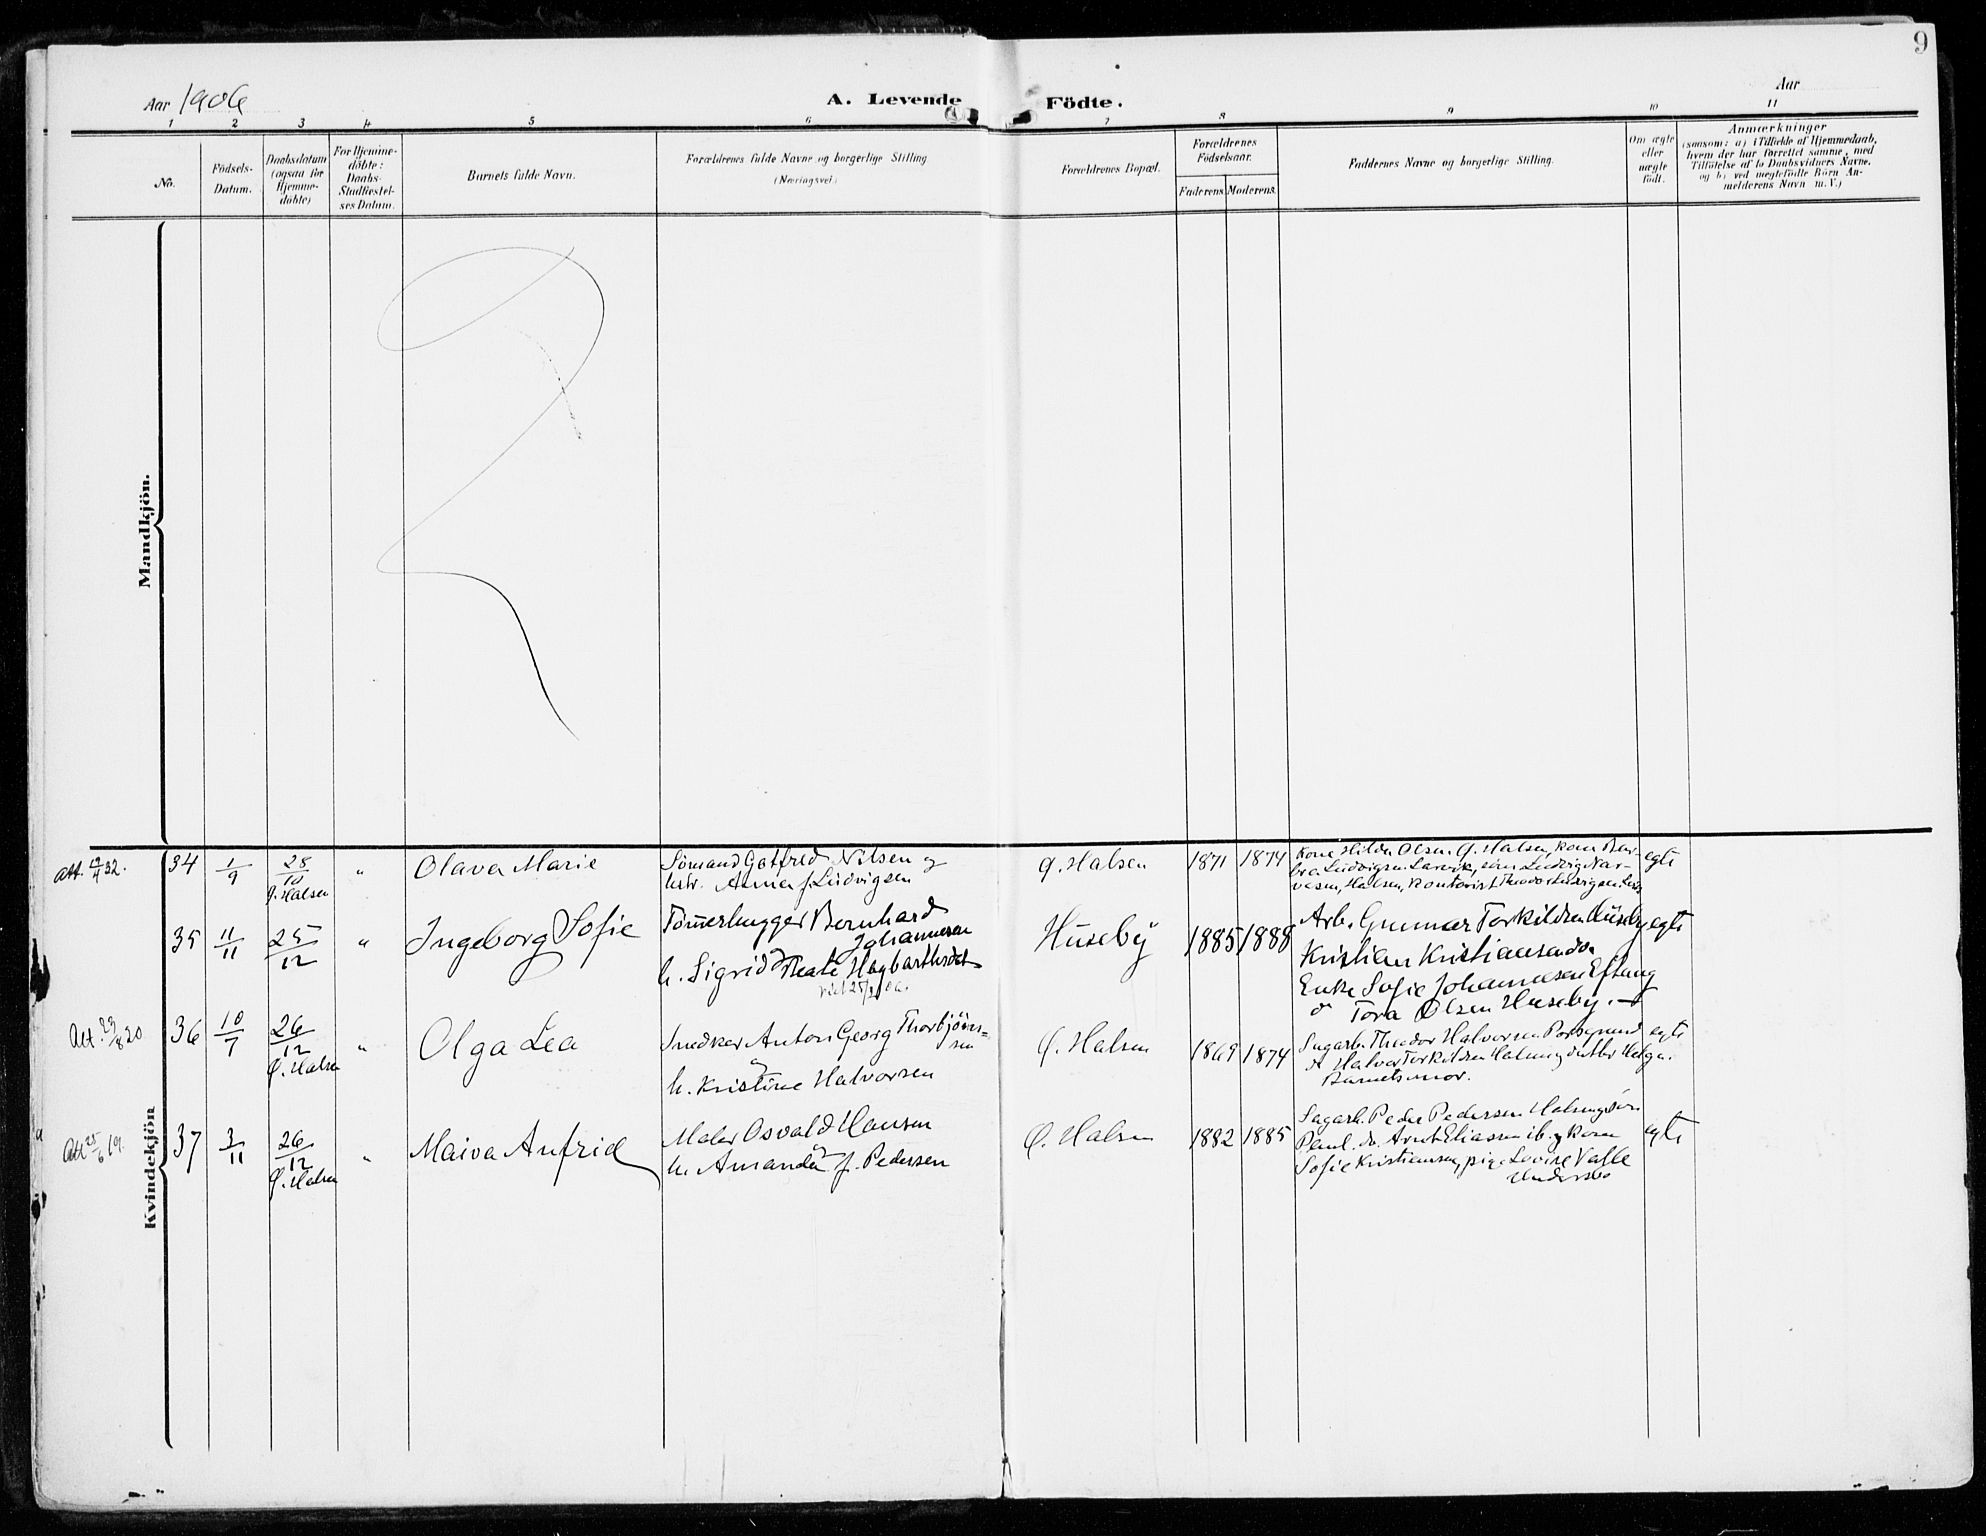 9
Aar 1906
A. Levende Födte.
Aar
1 2 3 4 5 6 7 8 9 10 11
No.
Födsels-Datum.
Daabsdatum (ogsaa for Hjemmedöbte)
For Hjemmedöbte: Daabs-Stadfæstelses Datum.
Barnets fulde Navn.
Forældrenes fulde Navne og borgerlige Stilling (Næringsvei)
Forældrenes Bopæl.
Forældrenes Födselsaar.
Faderens. Moderens.
Faddernes Navne og borgerlige Stilling.
Om ægte eller uægte födt.
Anmærkninger
(saasom: a) i Tilfælde af Hjemmedaab,
hvem der har forrettet samme, med
Tilföielse af to Daabsvidners Navne.
og b) ved uægtefödte Börn An-
melderens Navn m. V.)
Mandkjön.
Kvindekjön
34 1/9 28/10 Ö. Halsen " Olava Marie
Sömand Gotfred Nilsen og
hstr. Anna f. Ludvigsen
Ö. Halsen 1871 1874
Kone Hilda Olsen Ö. Halsen, kone
Ludvigsen Larvik,
Halsen, Kontorist
egte
35 11/11 25/12 " Ingeborg Sofie
Tömmerhugger Bernhard
Johannesen
h. Sigrid Theate
Huseby 1885 1888
Arb. Gunnar Torkildsen Huseby
Kristian Kristiansen do.
Enke Sofie Johannesen Eftang
o Tora Olsen Huseby.
egte
Att. 29/8 20 36 10/7 26/12 Ö. Halsen " Olga Lea
Snedker Anton Georg Thorbjörn-
sen
h. Kristine Halvorsen
Ö. Halsen 1869 1874
Sagarb. Theodor Halvorsen Porsgrund
Halvor Torkildsen
Barnets mor.
egte
Att 25/6 19. 37 3/11 26/12 Ö. Halsen " Maiva Anfrid
Maler Osvald Hansen
h. Amanda f. Pedersen
Ö. Halsen 1882 1885
Sagarb. Peder Pedersen
Paul. do. Arnt Eliassen ib. kone
Sofie Kristiansen, pige Lovise
egte